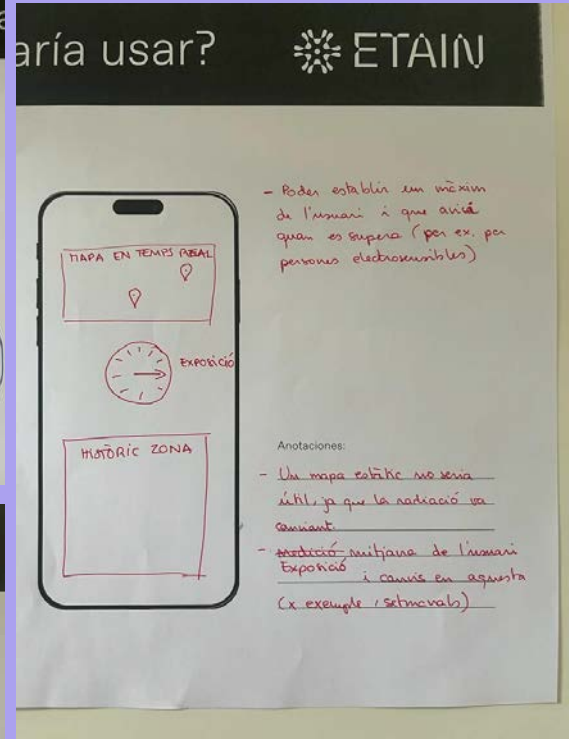 aría usar?
ETAIN
MAPA EN TEMPS REAL
EXPOSICIÓ
HISTÒRIC ZONA
- Poder establir un màxim
de l'usuari i que avisi
quan es supera (per ex. per
persones electrosensibles)
Anotaciones:
- Un mapa estàtic no seria
útil, ja que la radiació va
canviant.
- Medició mitjana de l'usuari
Exposició
i canvis en aquesta
(x exemple, setmanals)